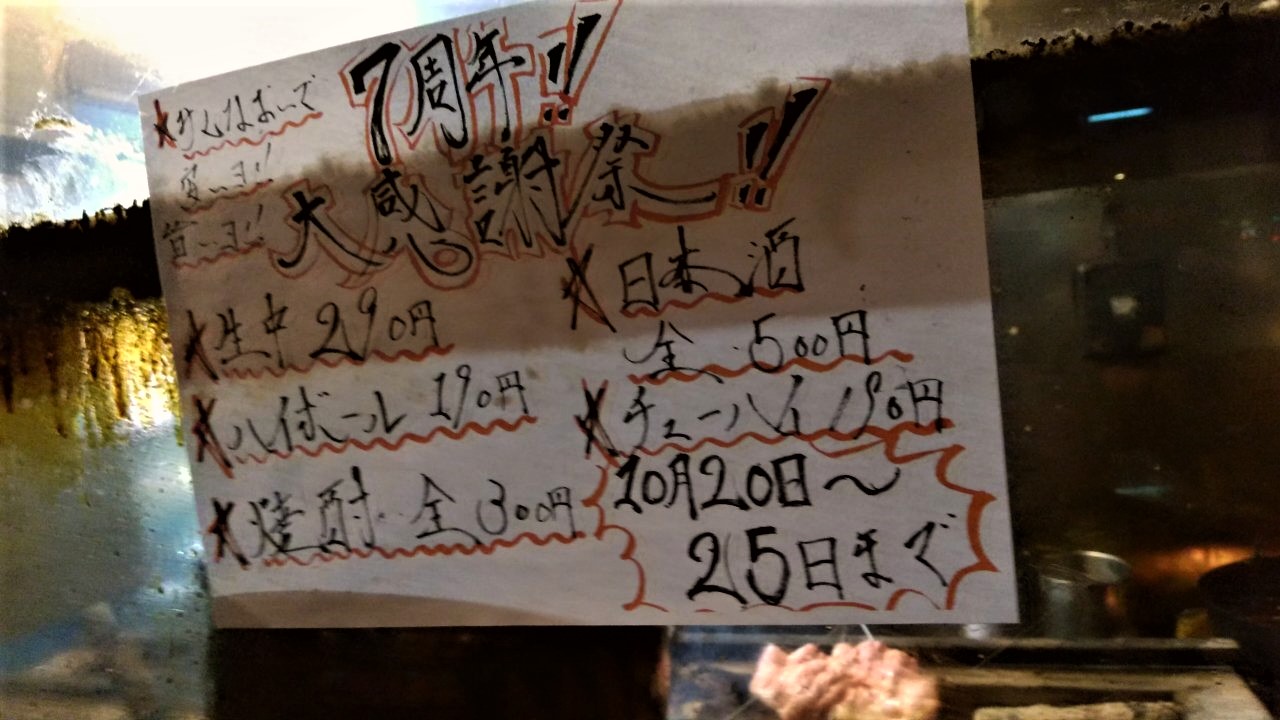 7周年!!
大感謝祭!!
安いヨ!
旨いヨ!
★生中 290円
★ハイボール 190円
★焼酎 全300円
★日本酒
全 500円
★チューハイ 190円
10月20日〜
25日まで